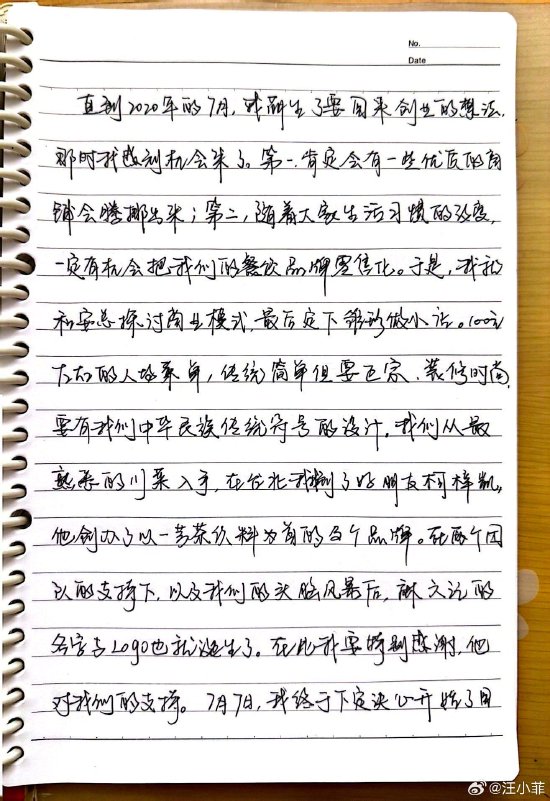 No.
Date
直到2020年的7月，我萌生了要回来创业的想法，
那时我感到机会来了。第一，肯定会有一些优质的商
铺会腾挪出来；第二，随着大家生活习惯的改变，
一定有机会把我们的餐饮品牌零售化。于是，我就
和安总探讨商业模式，最后定下做小店。100元
左右的人均菜单，传统简单但要正宗、装修时尚，
要有我们中华民族传统符号的设计。我们从最
熟悉的川菜入手，在台北我找到了好朋友柯梓凯，
他创办了以一芳茶饮料为首的多个品牌。在两个团
队的支持下，以及我们的头脑风暴后，麻六记的
名字与Logo也就诞生了。在此我要特别感谢，他
对我们的支持。7月7日，我终于下定决心开始了回
@汪小菲